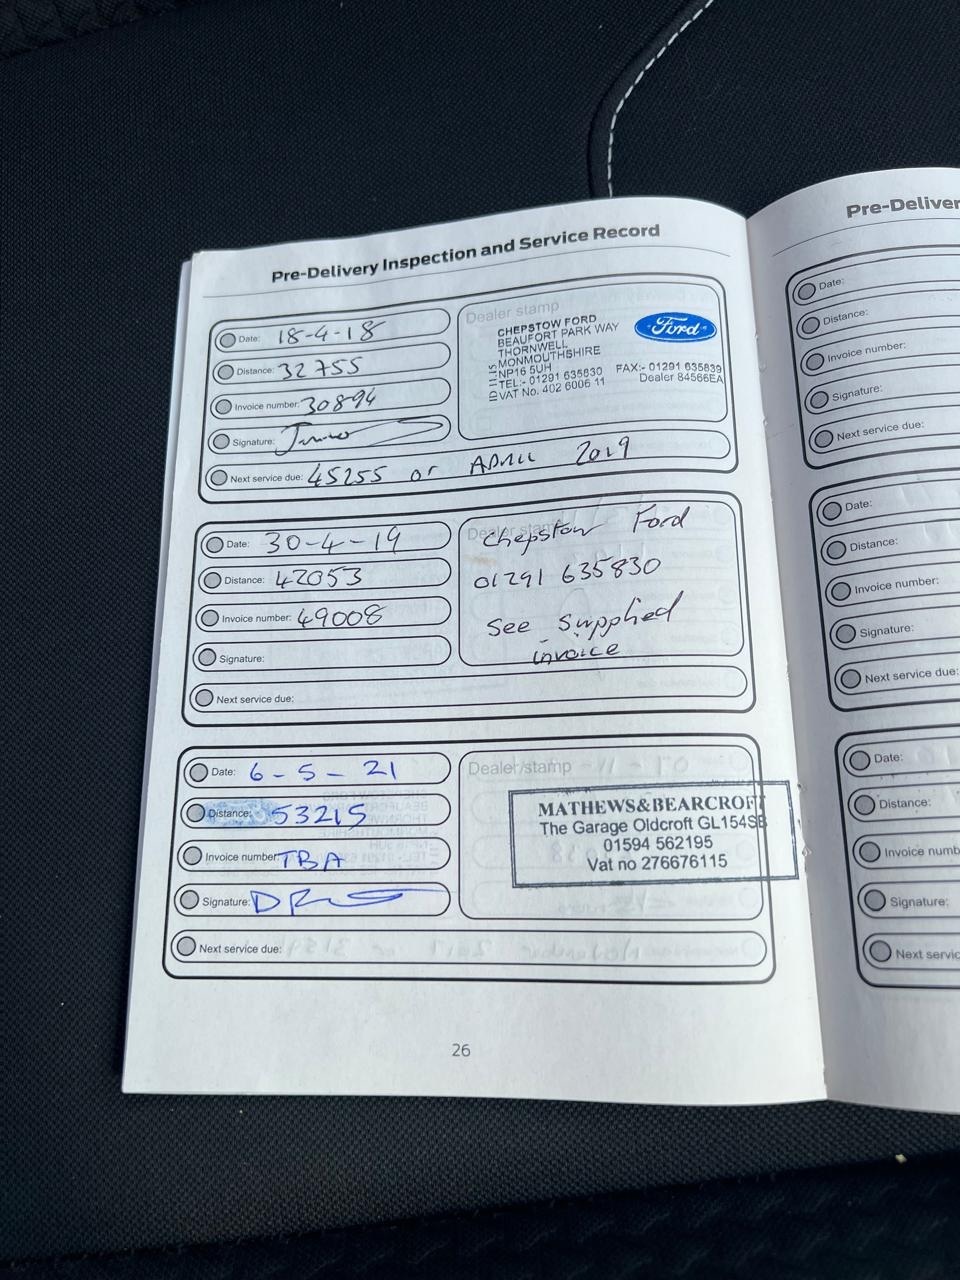 Pre-Delivery Inspection and Service Record
Date: 18-4-18
Distance: 32755
Invoice number: 30894
Signature:
Next service due: 45255 or APRIL 2019
Dealer stamp
CHEPSTOW FORD
BEAUFORT PARK WAY
THORNWELL
MONMOUTHSHIRE
NP16 5UH
TEL:- 01291 635830 FAX:- 01291 635839
VAT No. 402 6006 11 Dealer 84566EA
Ford
Date: 30-4-19
Distance: 42053
Invoice number: 49008
Signature:
Next service due:
Dealer stamp
Chepstow Ford
01291 635830
See supplied
invoice
Date: 6-5-21
Distance: 53215
Invoice number: TBA
Signature:
Next service due:
Dealer stamp
MATHEWS&BEARCROFT
The Garage Oldcroft GL154SB
01594 562195
Vat no 276676115
26
Pre-Deliver
Date:
Distance:
Invoice number:
Signature:
Next service due:
Date:
Distance:
Invoice number:
Signature:
Next service due:
Date:
Distance:
Invoice numb
Signature:
Next servic